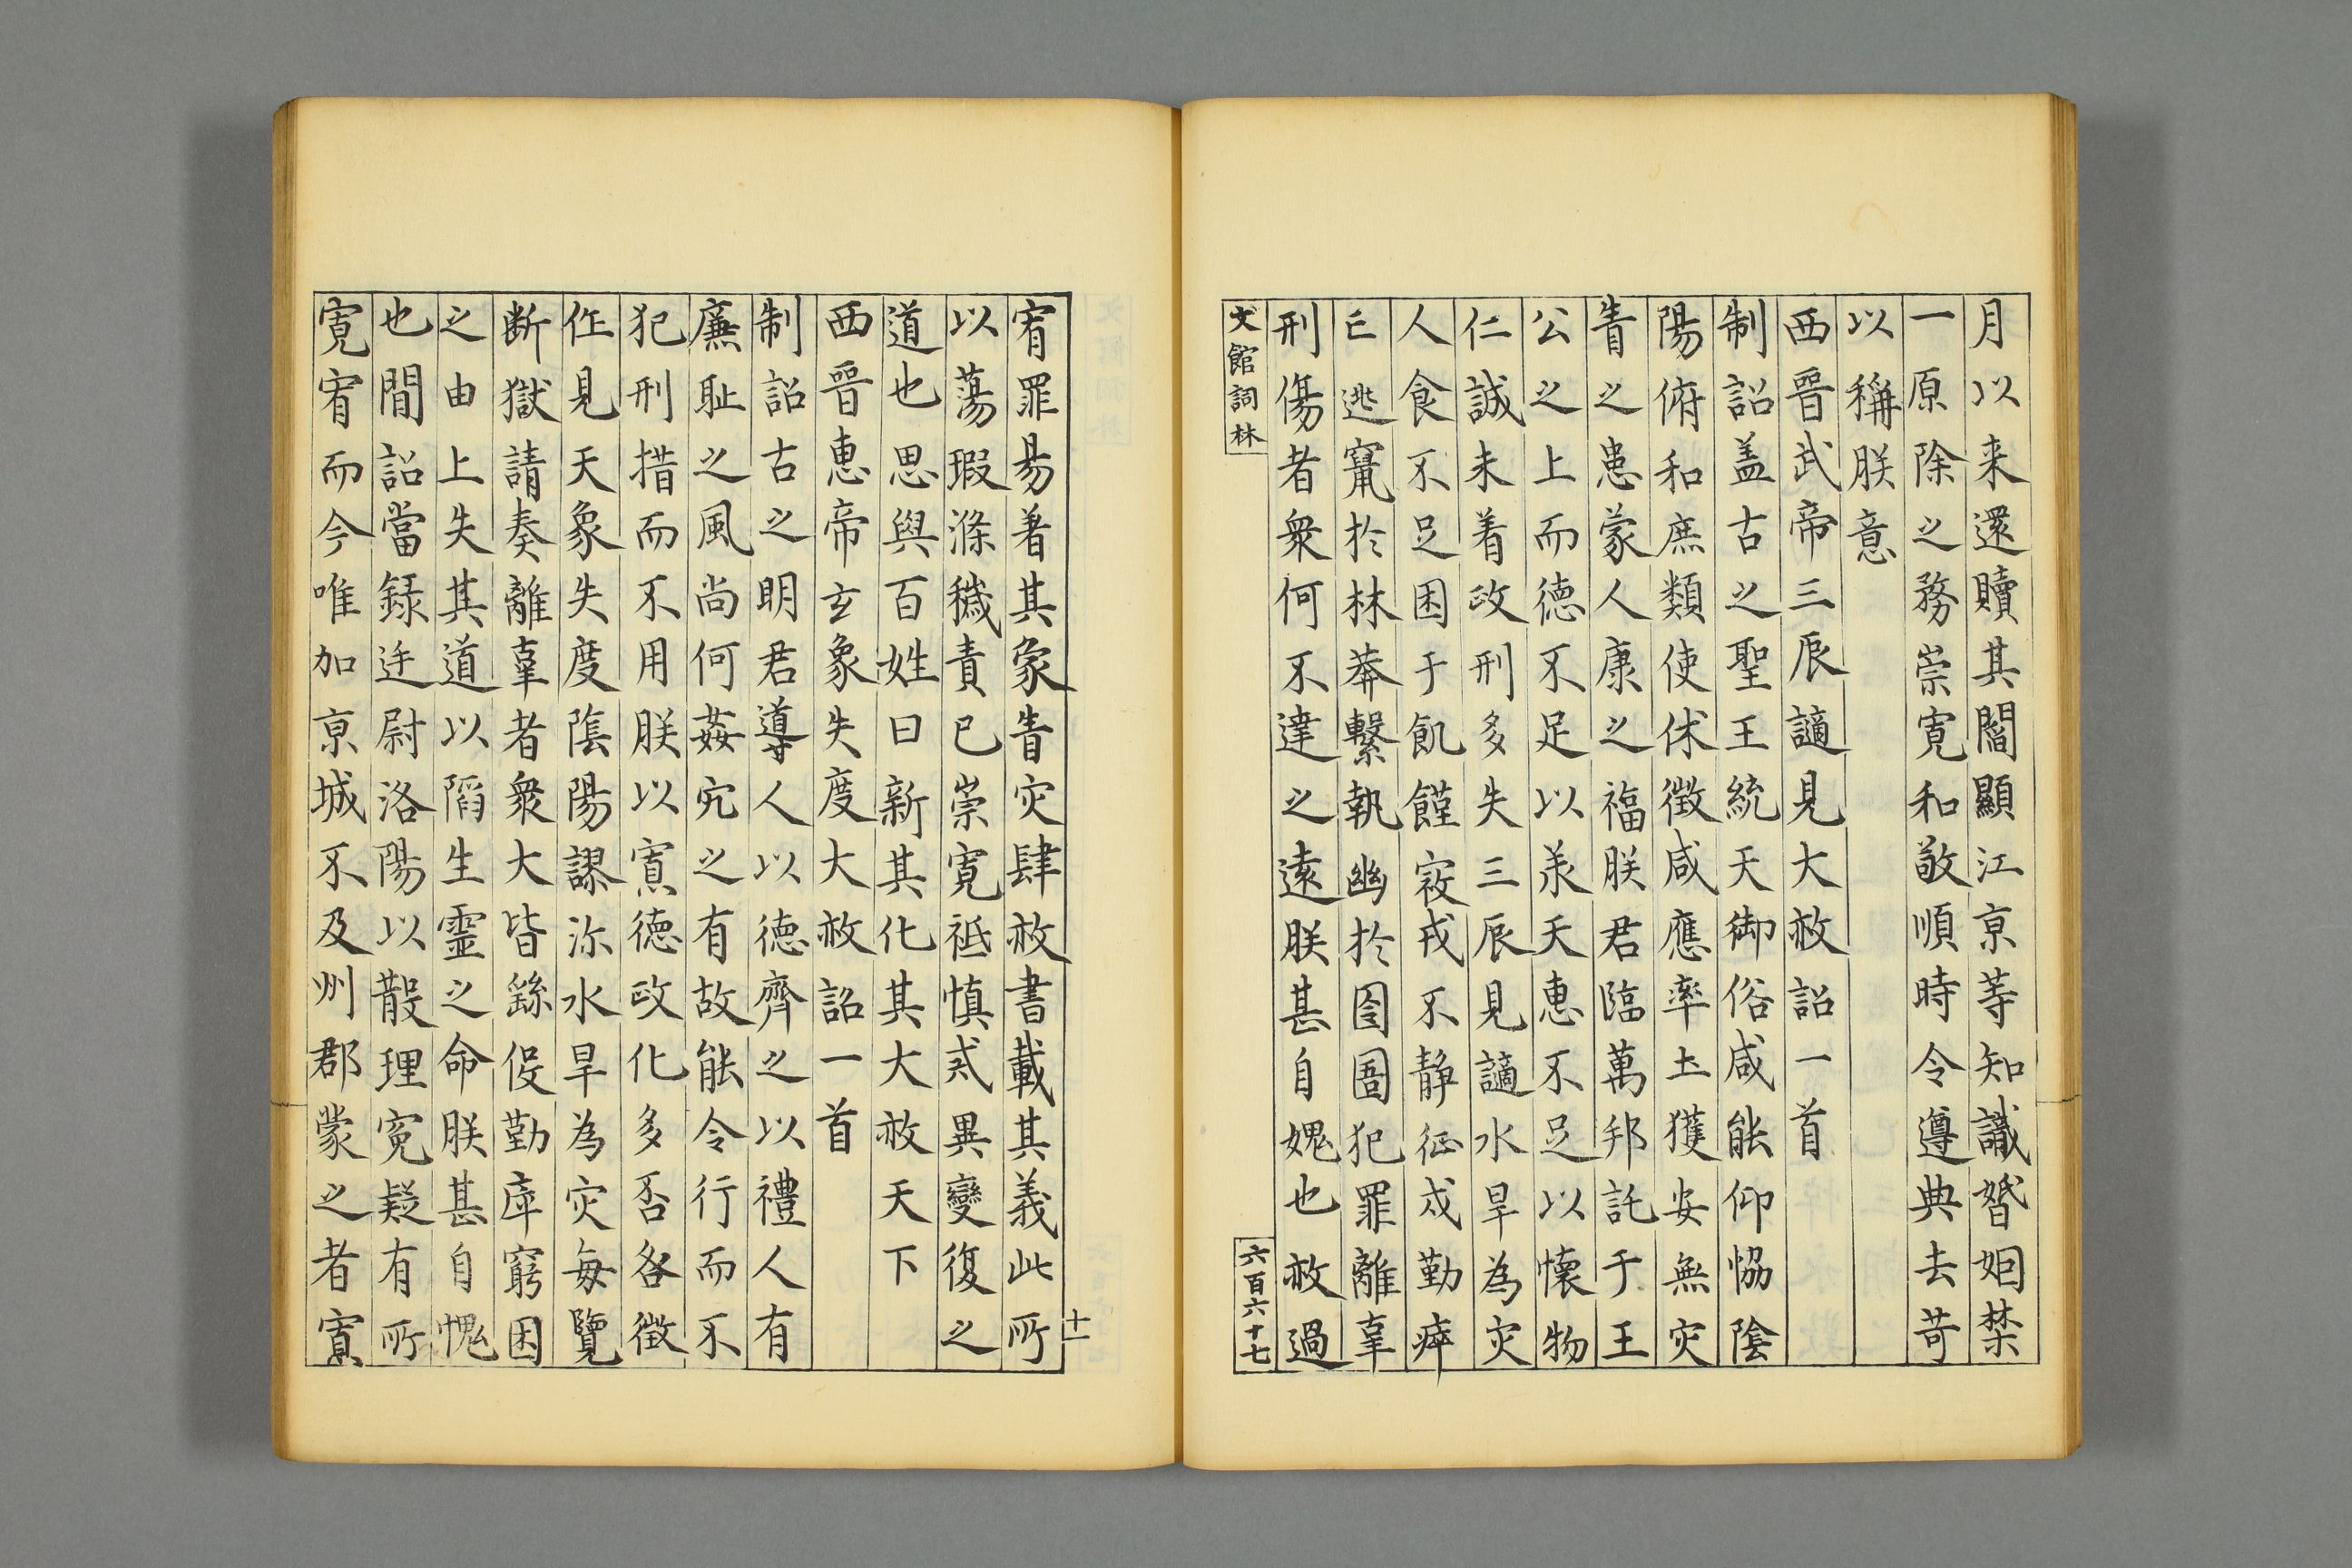 月以来還贖其閤顯江京等知識婚姻禁
一原除之務崇寛和敬順時令遵典去苛
以稱朕意
西晉武帝三辰謫見大赦詔一首
制詔盖古之聖王統天御俗咸能仰恊陰
陽俯和庶類使休徴咸應率土獲安無灾
眚之患蒙人康之福朕君臨萬邦託于王
公之上而徳不足以羕天惠不足以懐物
仁誠未着政刑多失三辰見謫水旱為灾
人食不足困于飢饉寇戎不静征戍勤瘁
亡逃竄於林莽繫執幽於囹圄犯罪離辜
刑傷者衆何不達之遠朕甚自媿也赦過
文館詞林
六百六十七
十一
宥罪易著其象眚灾肆赦書載其義此所
以蕩瑕滌穢責已崇寛祗慎貳異變復之
道也思與百姓曰新其化其大赦天下
西晉惠帝玄象失度大赦詔一首
制詔古之明君導人以徳齊之以禮人有
廉耻之風尚何姦宄之有故能令行而不
犯刑措而不用朕以寡徳政化多否咎徴
仡見天象失度陰陽謬沵水旱為灾毎覽
断獄請奏離辜者衆大皆繇役勤庳窮困
之由上失其道以陷生靈之命朕甚自愧
也間詔當録廷尉洛陽以散理寃疑有所
寛宥而今唯加京城不及州郡蒙之者寡